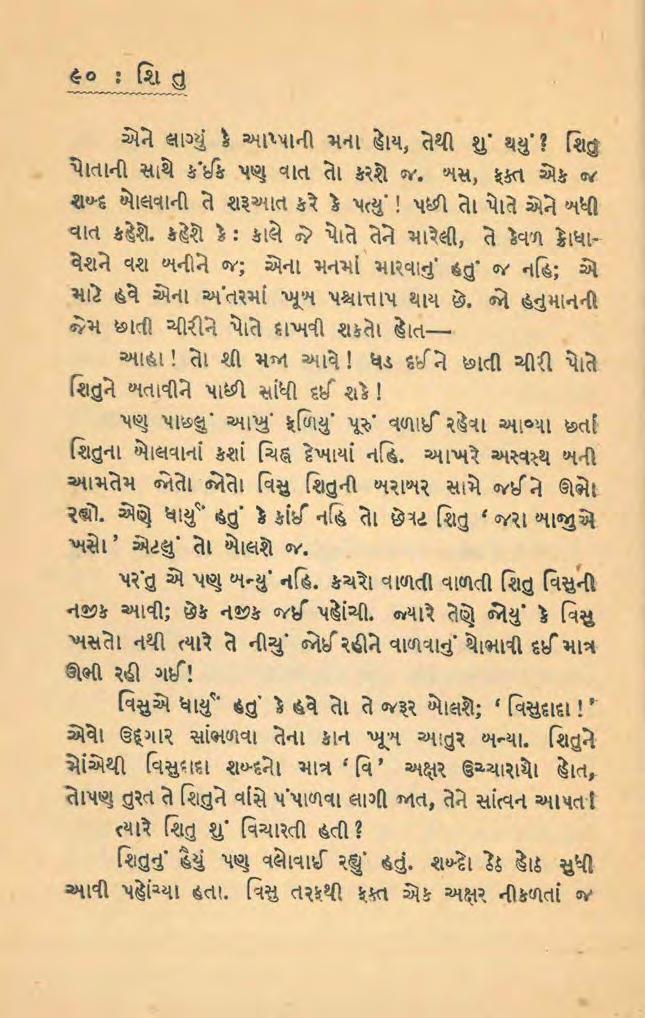 ૯૦ : શિ તુ
એને લાગ્યું કે આપ્પાની મના હોય, તેથી શું થયું? શિતુ
પોતાની સાથે કંઈક પણ વાત તો કરશે જ. બસ, ફક્ત એક જ
શબ્દ બોલવાની તે શરૂઆત કરે કે પત્યું! પછી તો પોતે એને બધી
વાત કહેશે. કહેશે કે: કાલે જે પોતે તેને મારેલી, તે કેવળ ક્રોધા-
વેશને વશ બનીને જ; એના મનમાં મારવાનું હતું જ નહિ; એ
માટે હવે એના અંતરમાં ખૂબ પશ્ચાત્તાપ થાય છે. જો હનુમાનની
જેમ છાતી ચીરીને પોતે દાખવી શકતો હોત—
આહા! તો શી મજા આવે! ધડ દઈને છાતી ચીરી પોતે
શિતુને બતાવીને પાછી સાંધી દઈ શકે!
પણ પાછલું આખું ફળિયું પૂરું વળાઈ રહેવા આવ્યા છતાં
શિતુના બોલવાનાં કશાં ચિહ્ન દેખાયાં નહિ. આખરે અસ્વસ્થ બની
આમતેમ જોતો જોતો વિસુ શિતુની બરાબર સામે જઈને ઊભો
રહ્યો. એણે ધાર્યું હતું કે કાંઈ નહિ તો છેવટ શિતુ ‘જરા બાજુએ
ખસો’ એટલું તો બોલશે જ.
પરંતુ એ પણ બન્યું નહિ. કચરો વાળતી વાળતી શિતુ વિસુની
નજીક આવી; છેક નજીક જઈ પહોંચી. જ્યારે તેણે જોયું કે વિસુ
ખસતો નથી ત્યારે તે નીચું જોઈ રહીને વાળવાનું થોભાવી દઈ માત્ર
ઊભી રહી ગઈ!
વિસુએ ધાર્યું હતું કે હવે તો તે જરૂર બોલશે; ‘વિસુદાદા!’
એવો ઉદ્‌ગાર સાંભળવા તેના કાન ખૂબ આતુર બન્યા. શિતુને
મોંએથી વિસુદાદા શબ્દનો માત્ર ‘વિ’ અક્ષર ઉચ્ચારાયો હોત,
તોપણ તુરત તે શિતુને વાંસે પંપાળવા લાગી જાત, તેને સાંત્વન આપત!
ત્યારે શિતુ શું વિચારતી હતી?
શિતુનું હૈયું પણ વલોવાઈ રહ્યું હતું. શબ્દો ઠેઠ હોઠ સુધી
આવી પહોંચ્યા હતા. વિસુ તરફથી ફક્ત એક અક્ષર નીકળતાં જ